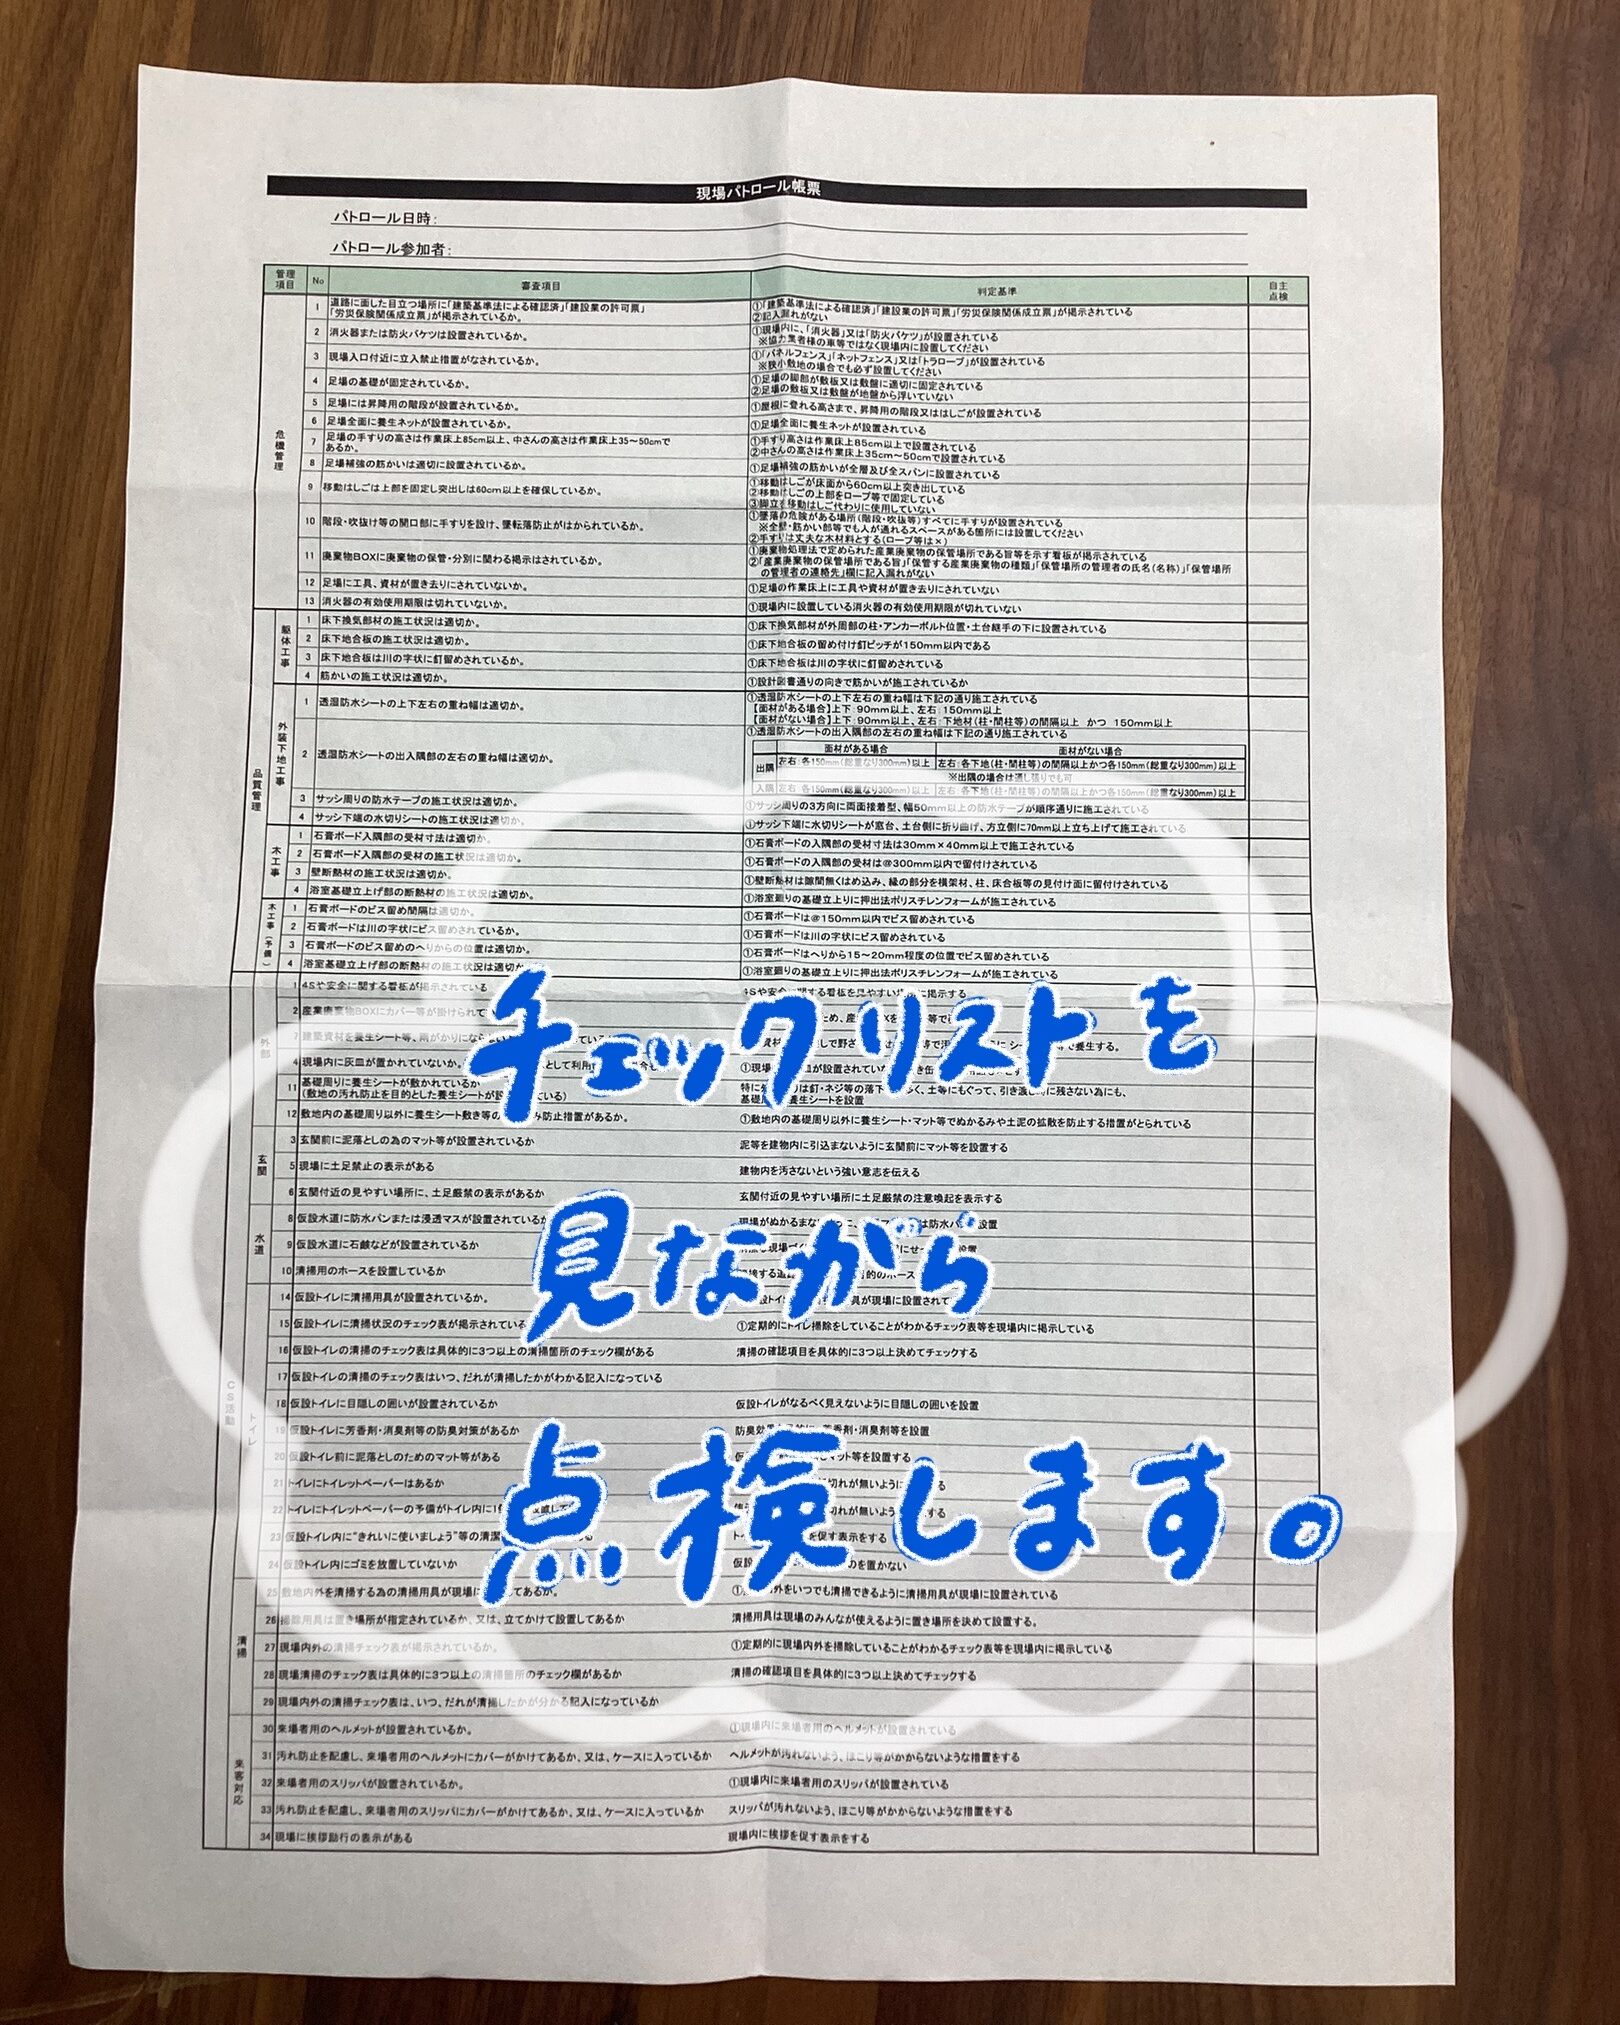 現場パトロール帳票
パトロール日時：
パトロール参加者：
管理項目 No 審査項目 判定基準 自主点検
危機管理
1 道路に面した目立つ場所に「建築基準法による確認済」「建設業の許可票」
「労災保険関係成立票」が掲示されているか。
①「建築基準法による確認済」「建設業の許可票」「労災保険関係成立票」が掲示されている
②記入漏れがない
2 消火器または防火バケツは設置されているか。
①現場内に、「消火器」又は「防火バケツ」が設置されている
※協力業者様の車等ではなく現場内に設置してください
3 現場入口付近に立入禁止措置がなされているか。
①「パネルフェンス」「ネットフェンス」又は「トラロープ」が設置されている
※狭小敷地の場合でも必ず設置してください
4 足場の基礎が固定されているか。
①足場の脚部が敷板又は敷盤に適切に固定されている
②足場の敷板又は敷盤が地盤から浮いていない
5 足場には昇降用の階段が設置されているか。
①屋根に登れる高さまで、昇降用の階段又ははしごが設置されている
6 足場全面に養生ネットが設置されているか。
①足場全面に養生ネットが設置されている
7 足場の手すりの高さは作業床上85cm以上、中さんの高さは作業床上35～50cmで
あるか。
①手すり高さは作業床上85cm以上で設置されている
②中さんの高さは作業床上35cm～50cmで設置されている
8 足場補強の筋かいは適切に設置されているか。
①足場補強の筋かいが全層及び全スパンに設置されている
9 移動はしごは上部を固定し突出しは60cm以上を確保しているか。
①移動はしごが床面から60cm以上突き出している
②移動はしごの上部をロープ等で固定している
③脚立を移動はしご代わりに使用していない
10 階段・吹抜け等の開口部に手すりを設け、墜転落防止がはかられているか。
①墜落の危険がある場所(階段・吹抜等)すべてに手すりが設置されている
※全壁・筋かい部等でも人が通れるスペースがある箇所には設置してください
②手すりは丈夫な木材料とする(ロープ等は×)
11 廃棄物BOXに廃棄物の保管・分別に関わる掲示はされているか。
①廃棄物処理法で定められた産業廃棄物の保管場所である旨等を示す看板が掲示されている
②「産業廃棄物の保管場所である旨」「保管する産業廃棄物の種類」「保管場所の管理者の氏名(名称)」「保管場所
の管理者の連絡先」欄に記入漏れがない
12 足場に工具、資材が置き去りにされていないか。
①足場の作業床上に工具や資材が置き去りにされていない
13 消火器の有効使用期限は切れていないか。
①現場内に設置している消火器の有効使用期限が切れていない
品質管理
躯体工事
1 床下換気部材の施工状況は適切か。
①床下換気部材が外周部の柱・アンカーボルト位置・土台継手の下に設置されている
2 床下地合板の施工状況は適切か。
①床下地合板の留め付け釘ピッチが150mm以内である
3 床下地合板は川の字状に釘留めされているか。
①床下地合板は川の字状に釘留めされている
4 筋かいの施工状況は適切か。
①設計図書通りの向きで筋かいが施工されているか
外装下地工事
1 透湿防水シートの上下左右の重ね幅は適切か。
①透湿防水シートの上下左右の重ね幅は下記の通り施工されている
【面材がある場合】上下：90mm以上、左右：150mm以上
【面材がない場合】上下：90mm以上、左右：下地材(柱・間柱等)の間隔以上 かつ 150mm以上
2 透湿防水シートの出入隅部の左右の重ね幅は適切か。
①透湿防水シートの出入隅部の左右の重ね幅は下記の通り施工されている
面材がある場合 面材がない場合
出隅 左右：各150mm(総重なり300mm)以上 左右：各下地(柱・間柱等)の間隔以上かつ各150mm(総重なり300mm)以上
※出隅の場合は通し張りでも可
入隅 左右：各150mm(総重なり300mm)以上 左右：各下地(柱・間柱等)の間隔以上かつ各150mm(総重なり300mm)以上
3 サッシ周りの防水テープの施工状況は適切か。
①サッシ周りの3方向に両面接着型、幅50mm以上の防水テープが順序通りに施工されている
4 サッシ下端の水切りシートの施工状況は適切か。
①サッシ下端に水切りシートが窓台、土台側に折り曲げ、方立側に70mm以上立ち上げて施工されている
木工事
1 石膏ボード入隅部の受材寸法は適切か。
①石膏ボードの入隅部の受材寸法は30mm×40mm以上で施工されている
2 石膏ボード入隅部の受材の施工状況は適切か。
①石膏ボードの入隅部の受材は@300mm以内で留付けされている
3 壁断熱材の施工状況は適切か。
①壁断熱材は隙間無くはめ込み、縁の部分を横架材、柱、床合板等の見付け面に留付けされている
4 浴室基礎立上げ部の断熱材の施工状況は適切か。
①浴室廻りの基礎立上りに押出法ポリスチレンフォームが施工されている
木工事(予備)
1 石膏ボードのビス留め間隔は適切か。
①石膏ボードは@150mm以内でビス留めされている
2 石膏ボードは川の字状にビス留めされているか。
①石膏ボードは川の字状にビス留めされている
3 石膏ボードのビス留めのへりからの位置は適切か。
①石膏ボードはへりから15～20mm程度の位置でビス留めされている
4 浴室基礎立上げ部の断熱材の施工状況は適切か
①浴室廻りの基礎立上りに押出法ポリスチレンフォームが施工されている
CS活動
外部
1 4Sや安全に関する看板が掲示されている
4Sや安全に関する看板を見やすい場所に掲示する
2 産業廃棄物BOXにカバー等が掛けられて
7 建築資材を養生シート等、雨がかりにならない
4 現場内に灰皿が置かれていないか。
11 基礎周りに養生シートが敷かれているか
(敷地の汚れ防止を目的とした養生シートが設置されている)
基礎周りに養生シートを設置
12 敷地内の基礎周り以外に養生シート敷き等のぬかるみ防止措置があるか。
①敷地内の基礎周り以外に養生シート・マット等でぬかるみや土泥の拡散を防止する措置がとられている
玄関
3 玄関前に泥落としの為のマット等が設置されているか
泥等を建物内に引込まないように玄関前にマット等を設置する
5 現場に土足禁止の表示がある
建物内を汚さないという強い意志を伝える
6 玄関付近の見やすい場所に、土足厳禁の表示があるか
玄関付近の見やすい場所に土足厳禁の注意喚起を表示する
水道
8 仮設水道に防水パンまたは浸透マスが設置されているか
9 仮設水道に石鹸などが設置されているか
10 清掃用のホースを設置しているか
トイレ
14 仮設トイレに清掃用具が設置されているか。
15 仮設トイレに清掃状況のチェック表が掲示されている
①定期的にトイレ掃除をしていることがわかるチェック表等を現場内に掲示している
16 仮設トイレの清掃のチェック表は具体的に3つ以上の清掃箇所のチェック欄がある
清掃の確認項目を具体的に3つ以上決めてチェックする
17 仮設トイレの清掃のチェック表はいつ、だれが清掃したかがわかる記入になっている
18 仮設トイレに目隠しの囲いが設置されているか
仮設トイレがなるべく見えないように目隠しの囲いを設置
19 仮設トイレに芳香剤・消臭剤等の防臭対策があるか
20 仮設トイレ前に泥落としのためのマット等がある
21 トイレにトイレットペーパーはあるか
22 トイレにトイレットペーパーの予備がトイレ内に
23 仮設トイレ内に"きれいに使いましょう"等の清潔
24 仮設トイレ内にゴミを放置していないか
清掃
25 敷地内外を清掃する為の清掃用具が現場に設置してあるか。
①敷地内外をいつでも清掃できるように清掃用具が現場に設置されている
26 掃除用具は置き場所が指定されているか、又は、立てかけて設置してあるか
清掃用具は現場のみんなが使えるように置き場所を決めて設置する。
27 現場内外の清掃チェック表が掲示されているか。
①定期的に現場内外を掃除していることがわかるチェック表等を現場内に掲示している
28 現場清掃のチェック表は具体的に3つ以上の清掃箇所のチェック欄があるか
清掃の確認項目を具体的に3つ以上決めてチェックする
29 現場内外の清掃チェック表は、いつ、だれが清掃したかが分かる記入になっているか
来客対応
30 来場者用のヘルメットが設置されているか。
①現場内に来場者用のヘルメットが設置されている
31 汚れ防止を配慮し、来場者用のヘルメットにカバーがかけてあるか、又は、ケースに入っているか
ヘルメットが汚れないよう、ほこり等がかからないような措置をする
32 来場者用のスリッパが設置されているか。
①現場内に来場者用のスリッパが設置されている
33 汚れ防止を配慮し、来場者用のスリッパにカバーがかけてあるか、又は、ケースに入っているか
スリッパが汚れないよう、ほこり等がかからないような措置をする
34 現場に挨拶励行の表示がある
現場内に挨拶を促す表示をする
チェックリストを
見ながら
点検します。